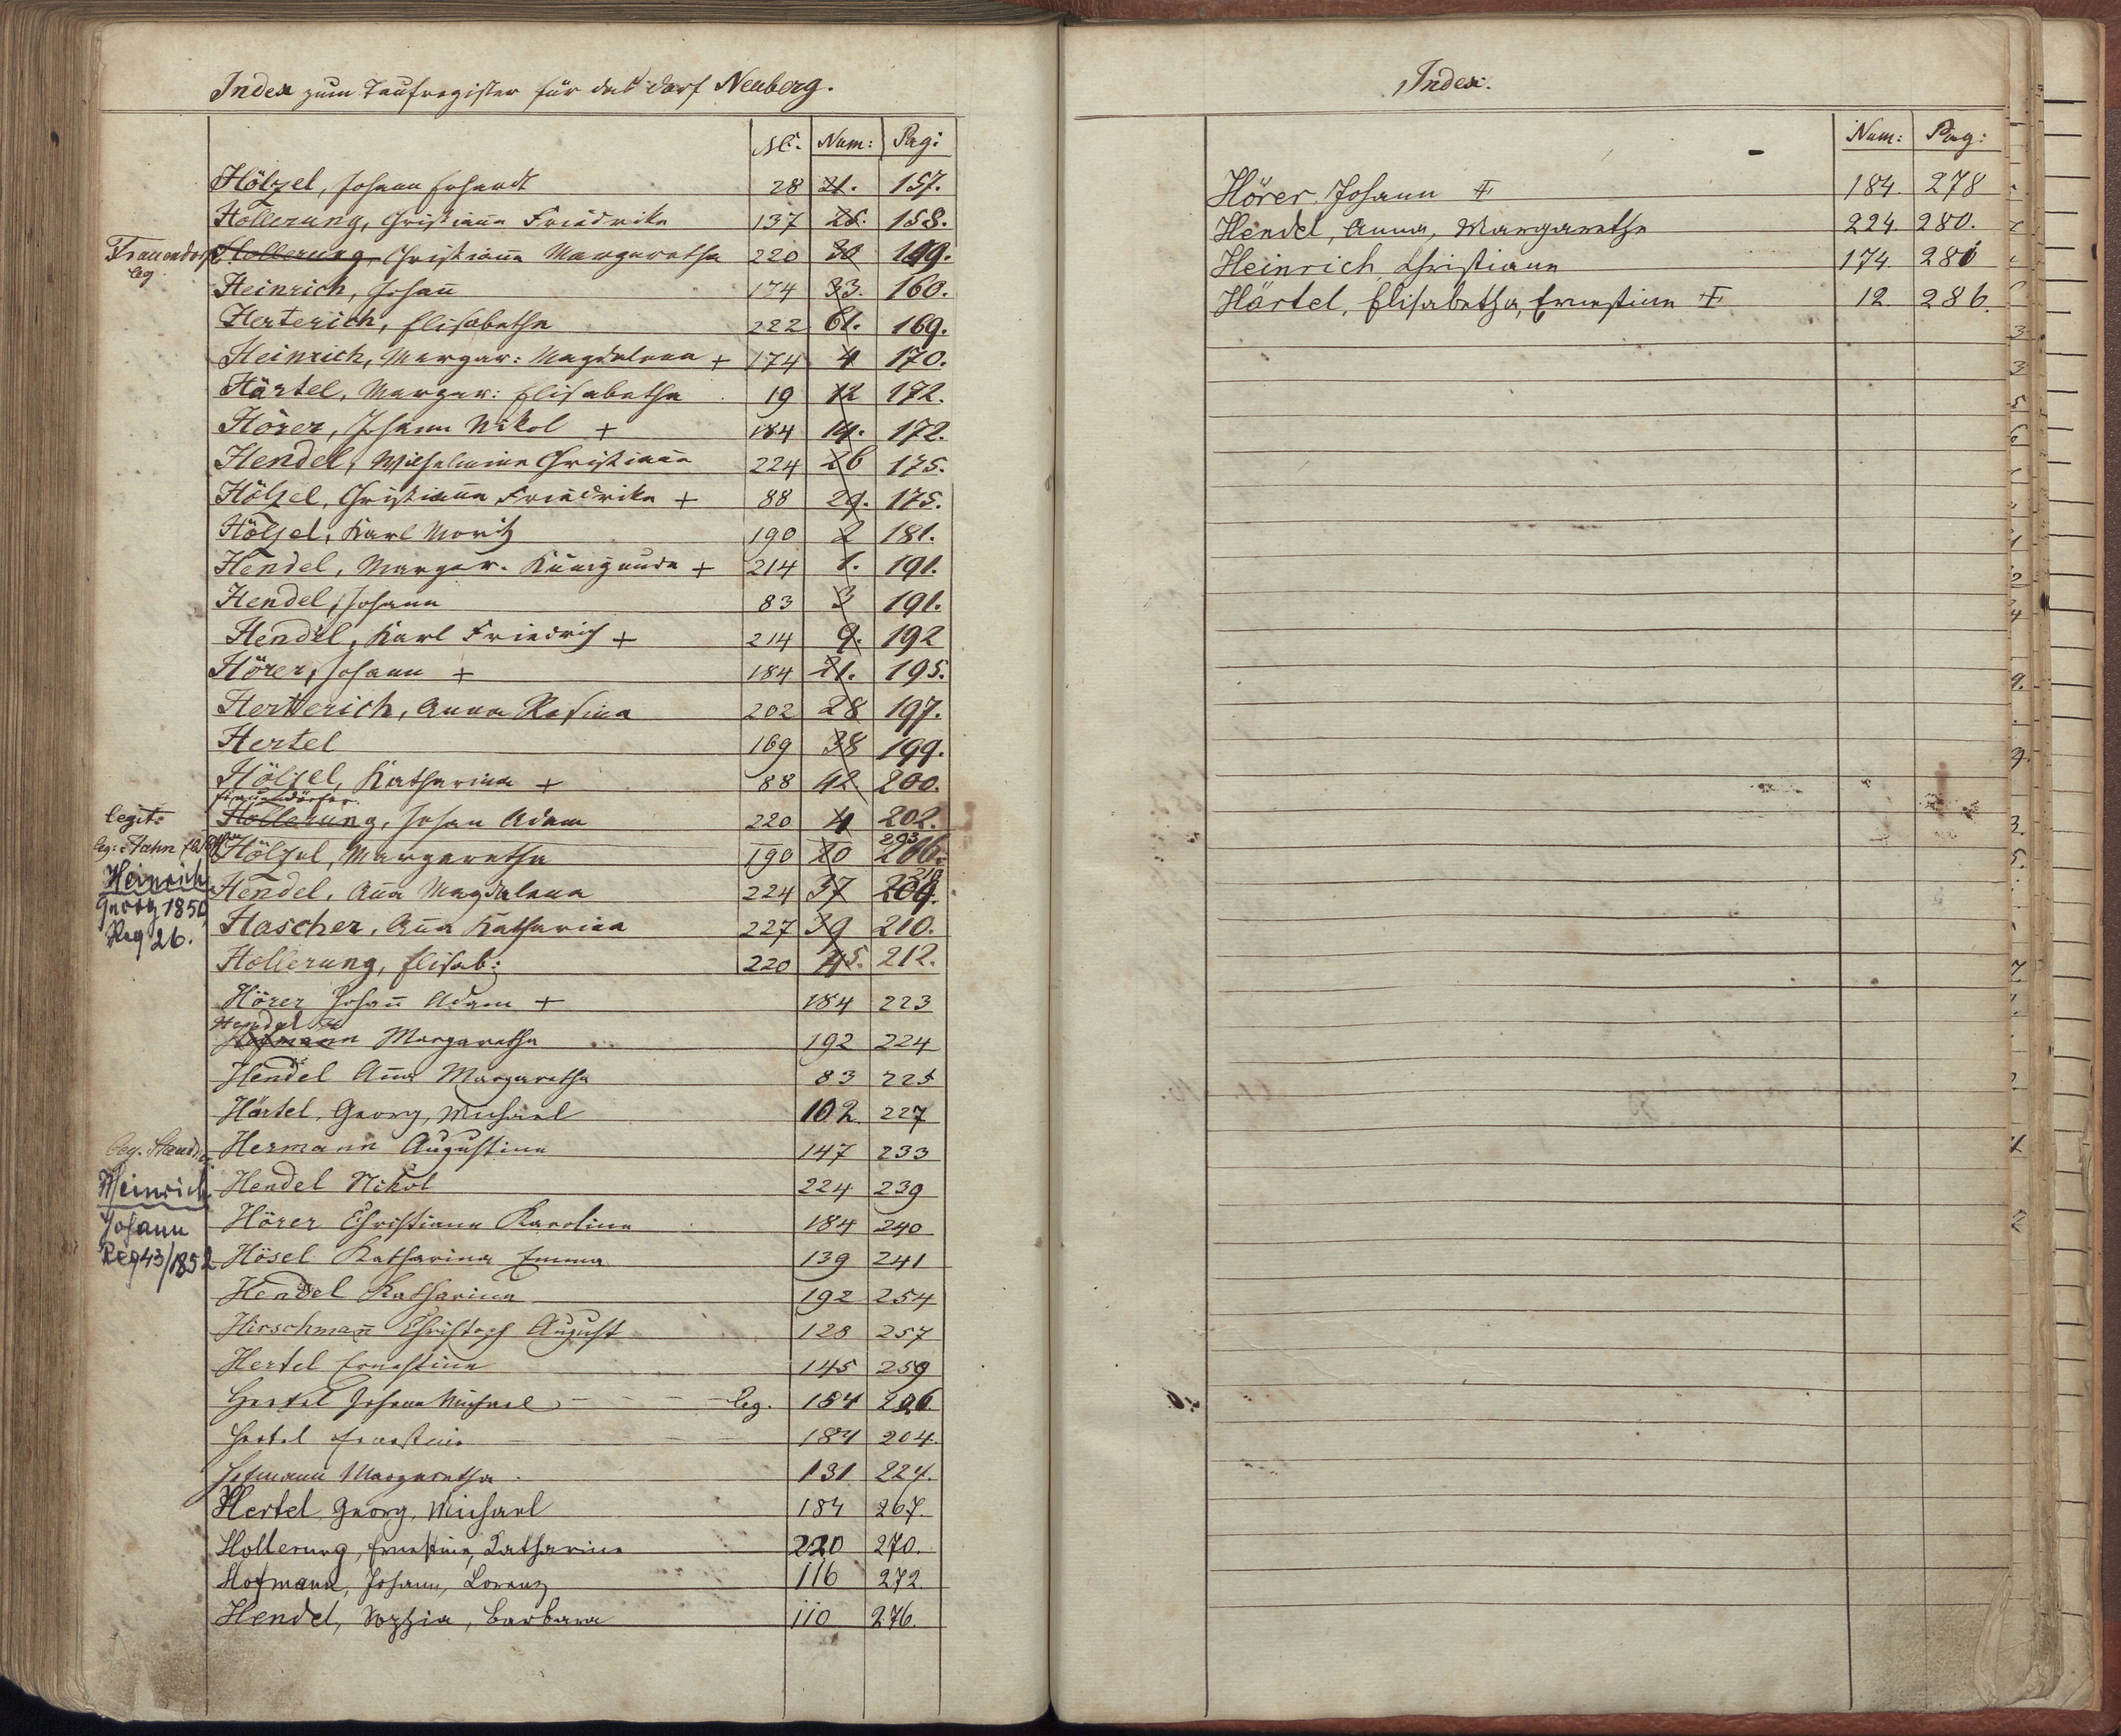 Index zum Taufregister für das Dorf Neuberg.
Nº. Num: Pag:
Hölzel, Johann Erhardt 28 21. 157.
Hollerung, Christianna Friedrika 137 25. 158.
Frauendorf Hollerung, Christianna Margaretha 220 30 199.
leg
Heinrich, Johañ 174 33. 160.
Herterich, Elisabetha 222 61. 169.
Heinrich, Margar: Magdalena + 174 4 170.
Härtel, Margar: Elisabetha 19 12 172.
Hörer, Johann Nikol + 184 14. 172.
Hendel, Wilhelmine Christianna 224 26 175.
Hölzel, Christianna Friedrika + 88 29. 175.
Hölzel, Karl Moritz 190 2 181.
Hendel, Margar. Kunigunda + 214 1. 191.
Hendel, Johann 83 3 191.
Hendel, Karl Friedrich + 214 9. 192
Hörer, Johann + 184 21. 195.
Hertterich, Anna Rosina 202 28 197.
Hertel 169 38 199.
Hölzel, Katharina + 88 42. 200.
legit: Hollerung, Johan Adam 220 4 202.
leg: Hahn Hölzel, Margaretha 190 20 206.
203
Heinrich Hendel, Aña Magdalena 224 37 209.
210
Georg 1850
Reg 26.
Hascher, Aña Katharina 227 39 210.
Hollerung, Elisab: 220 45. 212.
Hörer Johañ Adam + 184 223
Hendel
Hofmann Margaretha 192 224
Hendel Aña Margaretha 83 225
Härtel, Georg, Michael 102. 227
leg. Hermann Augustine 147 233
Heinrich Hendel Nikol 224 239
Johann Hörer Christiane Karolina 184 240
Reg 43/1852 Hösel Katharina Emma 139 241
Hendel Katharina 192 254
Hirschmañ Christoph August 128 257
Hertel Ernestine 145 259
Hertel Johann Michael leg. 184 206.
Hertel Ernestine 184 204.
Hofmann Margaretha 131 224.
Hertel, Georg, Michael 184 267.
Hollerung, Ernestine, Katharina 220 270.
Hofmann, Johann, Lorenz 116 272.
Hendel, Sophia, Barbara 110 276.
Index.
Num: Pag:
Hörer, Johann 184. 278
Hendel, Anna, Margaretha 224. 280.
Heinrich Christiane 174. 281
Härtel, Elisabetha, Ernestine 12. 286.